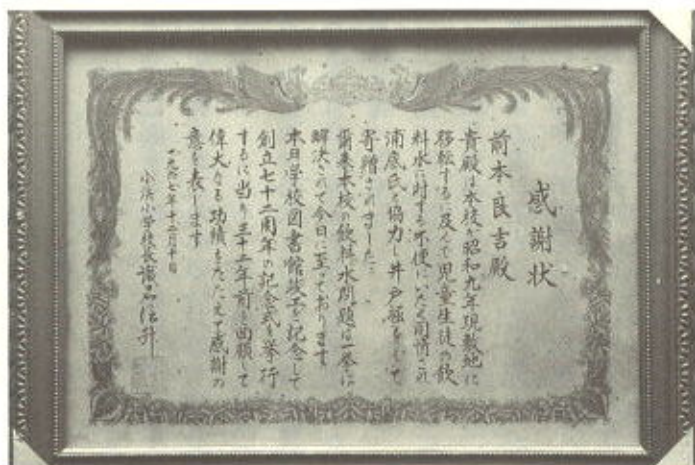 感謝状
前本良吉殿
貴殿は本校が昭和九年現敷地に
移転するに及んで児童生徒の飲
料水に対する不便にいたく同情され
浦底氏と協力し井戸を
寄贈されました
爾来本校の飲料水問題は一挙に
解決されて今日に至っております
本日学校図書館竣工を記念して
創立七十二周年の記念式を挙行
するに当り三十二年前を回顧して
偉大なる功績をたたえて感謝の
意を表します
一九六七年十二月十日
小浜小学校長